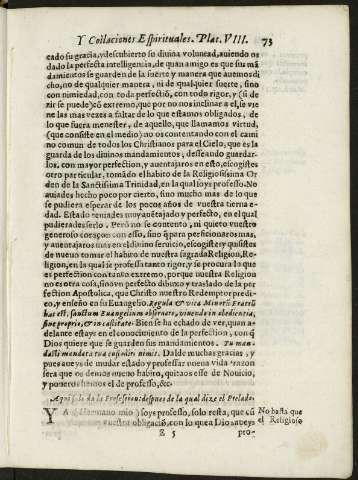 Y Collaciones Espirituales. Plat. VIII. 73
cado su gracia, y descubierto su divina voluntad, aviendo os
dado la perfecta intelligencia, de quan amigo es que sus mã
damientos se guarden de la suerte y manera que avemos di
cho, no de qualquier manera, ni de qualquier suerte, sino
con nimiedad, con toda perfectiõ, con todo rigor, y (si de
zir se puede) cõ extremo, que por no nos inclinar a el, se vie
ne las mas vezes a faltar de lo que estamos obligados, de
lo que fuera menester, de aquello, que llamamos virtud,
(que consiste en el medio) no os contentando con el cami
no comun de todos los Christianos para el Cielo, que es la
guarda de los divinos mandamientos, desseando guardar-
los, con mayor perfection, y aventajaros en esto, escogistes
otro particular, tomãdo el habito de la Religiosissima Or
den de la Sanctissima Trinidad, en la qual soys professo. No
aviades hecho poco por cierto, sino mucho mas de lo que
se pudiera esperar de los pocos años de vuestra tierna e-
dad. Estado teniades muy avẽtajado y perfecto, en el qual
pudierades serlo. Però no se contento, ni quieto vuestro
generoso coraçon con esso, sino q̃ para perficionaros mas,
y aventajaros mas en el divino servicio, escogistes y quisistes
de nuevo tomar el habito de nuestra sagrada Religion, Re-
ligion, en la qual se professa tanto rigor, y se procura lo que
es perfection con tanto extremo, porque nuestra Religion
no es otra cosa, sino vn perfecto dibuxo y traslado de la per
fection Apostolica, que Christo nuestro Redemptor predi-
co, y enseño en su Evangelio. Regula & vita Minorũ Fratrũ
hæc est, sanctum Euangelium obseruare, viuendo in obedientia,
sine proprio, & in castitate. Bien se ha echado de ver, quan a-
delante estays en el conocimiento de la perfection, con q̃
Dios quiere que se guarden sus mandamientos. Tu man-
dasti mandata tua custodiri nimis. Dalde muchas gracias, y
pues aveys de mudar estado y professar nueva vida razon
sera que os demos nuevo habito, quitaos esse de Novicio,
y poneros hemos el de professo, &c.
Aqui se le da la Profession: despues de la qual dize el Prelado.
YA (Hermano mio) soys professo, solo resta, que cũ No basta que
vuestra obligaciõ, con lo que a Dios aveys el Religioso
Z 5 pro-